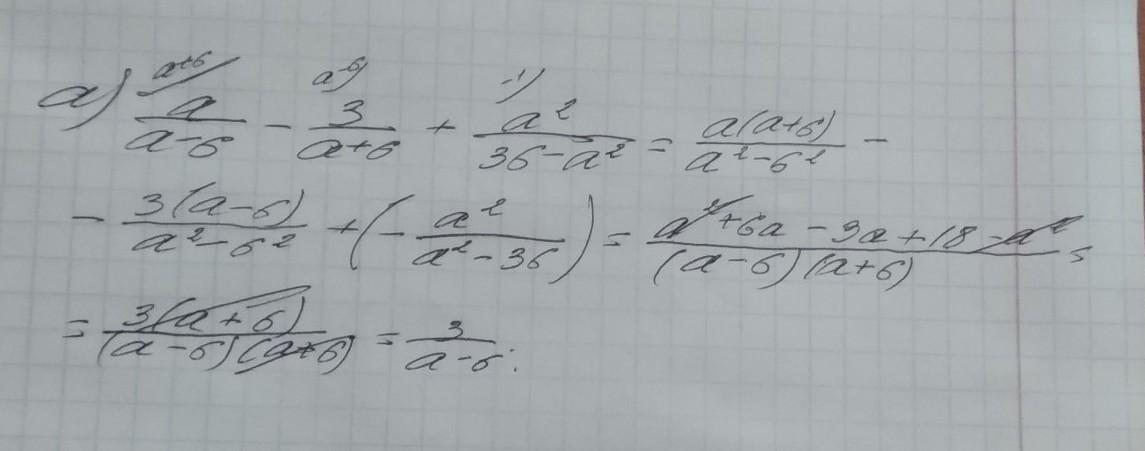 a) a+6) a/(a-6) - a-6) 3/(a+6) + -1) a²/(36-a²) = a(a+6)/(a²-6²) -
- 3(a-6)/(a²-6²) + (- a²/(a²-36)) = (a²+6a-3a+18-a²)/((a-6)(a+6)) =
= 3(a+6)/((a-6)(a+6)) = 3/(a-6).